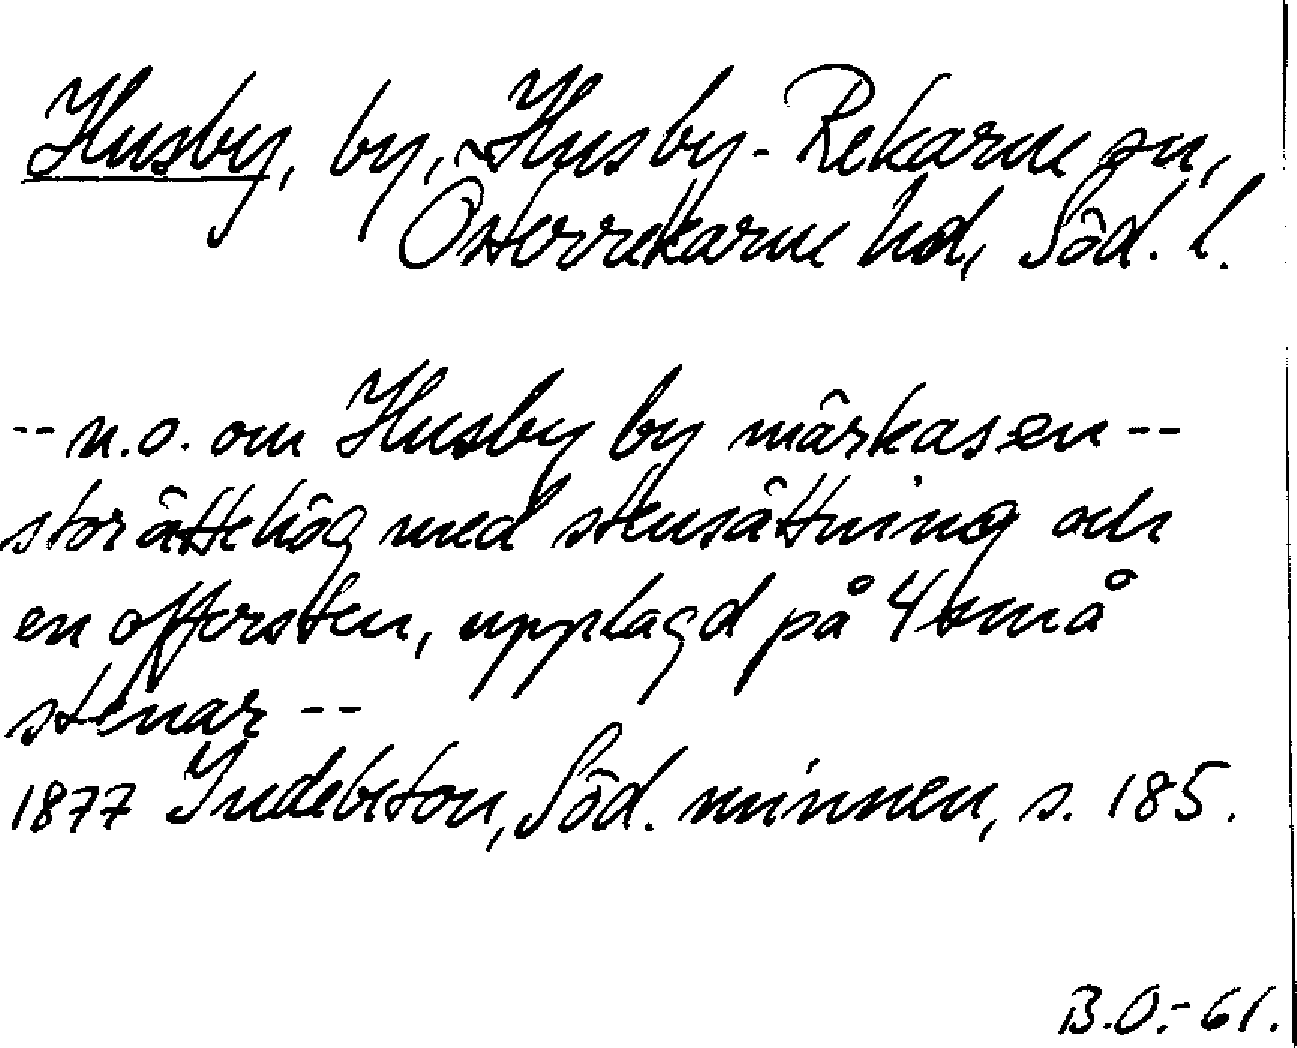 Husby, by, Husby-Rekarne sn,
Österrekarne hd, Söd. l.
-- n.o. om Husby by märkas en --
stor ättehög med stensättning och
en offersten, upplagd på 4 små
stenar --
1877 Indebetou, Söd. minnen, s. 185.
B.O.-61.